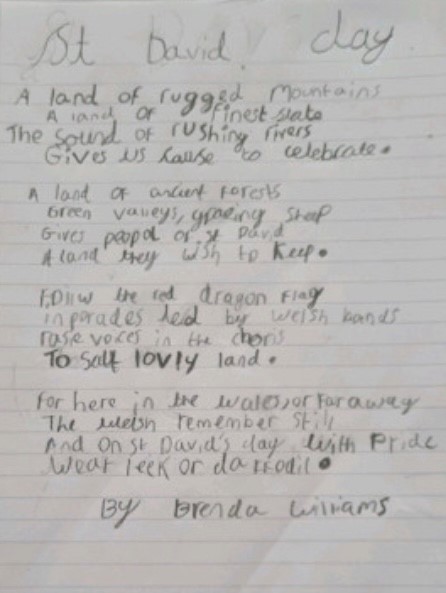 St David day
A land of rugged mountains
A land of finest slate
The sound of rushing rivers
Gives us cause to celebrate.
A land of ancient forests
Green valleys, grazing sheep
Gives peopol of st David
A land they wish to keep.
Follw the red dragon flag
in parades lead by welsh bands
rasie voices in the choris
To salt lovly land.
for here in the wales, or far away
The welsh remember still
And on st David's day with Pride
Wear leek or daffodil.
By Brenda Williams